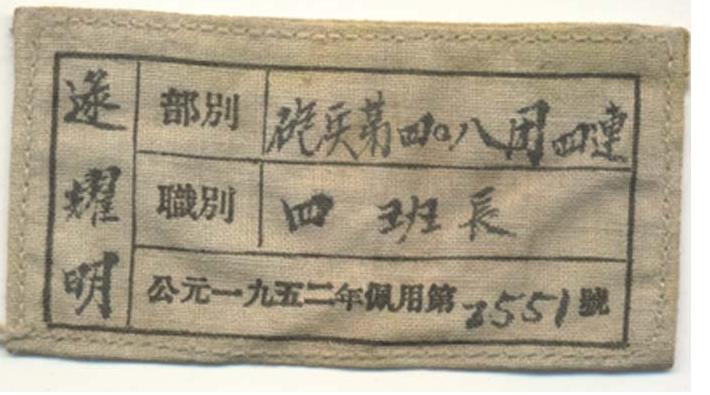 逯耀明
部別 砲兵第四〇八团四連
職別 四班長
公元一九五二年佩用第2551號